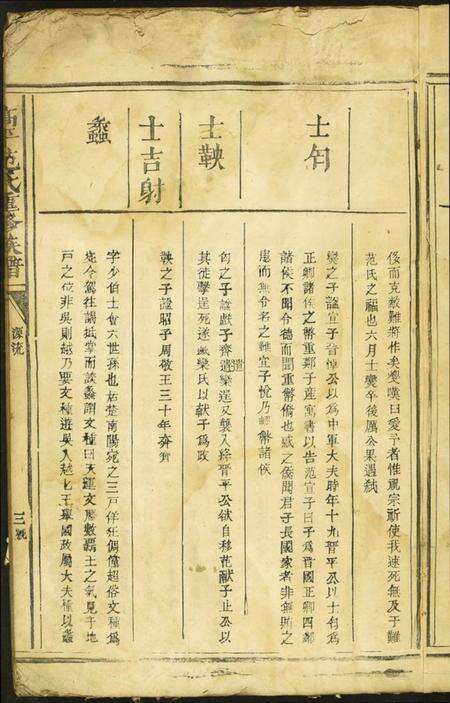 侈而克敵難將作矣燮嘆曰愛予者惟祝宗祈使我速死無及于難
范氏之福也六月士燮卒後厲公果遇弒
士匄
燮之子諡宣子晉悼公以為中軍大夫時年十九晉平公以士匄為
正卿諸侯之幣重鄭子產寓書以告范宣子曰子為晉國正卿四鄰
諸侯不聞令德而聞重幣僑也惑之僑聞君子長國家者非無賄之
患而無令名之難宣子悅乃輕幣諸侯
士鞅
匄之子諡獻子齊遣欒逞又襲入絳晉平公欲自移范獻子止公以
其徒擊逞死遂滅欒氏以獻子為政
士吉射
鞅之子諡昭子周敬王三十年奔齊
蠡
字少伯士會六世孫也居楚南陽宛之三戶佯狂倜儻超俗文種為
宛令駕往謁抵掌而談蠡謂文種曰天運文歷數霸王之氣見于地
戶之位非吳則越乃要文種遊吳入越七王舉國政屬大夫種以蠡
氏重修族譜
源流
三號